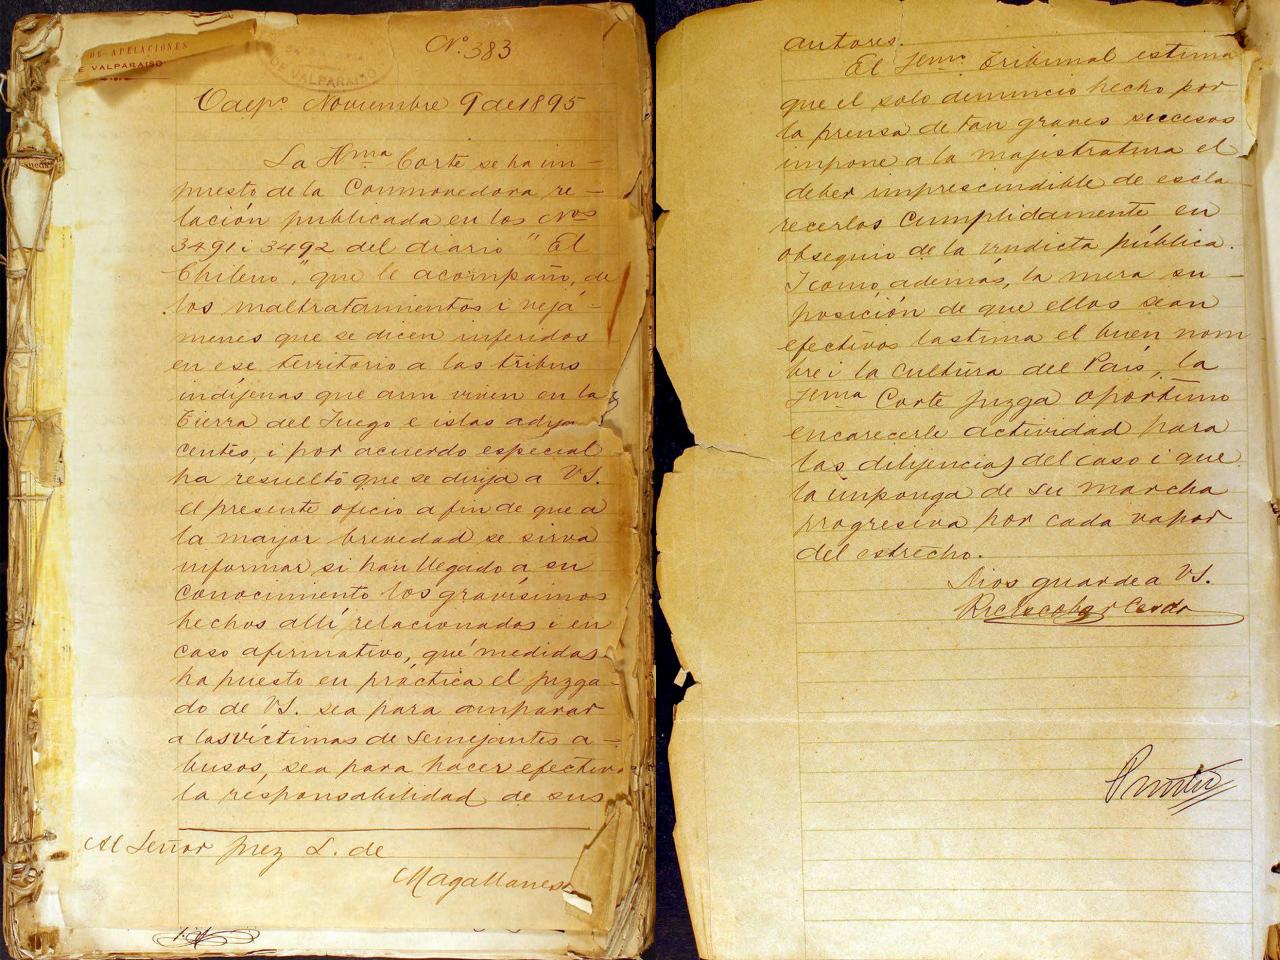 DE APELACIONES
E VALPARAISO
DE VALPARAISO
Nº. 383
Valpº Noviembre 9 de 1895
La Hma Corte se ha im-
puesto de la Conmovedora re-
lación publicada en los Nos
3491 i 3492 del diario "El
Chileno", que le acompaño, de
los maltratamientos i vejá-
menes que se dicen inferidos
en ese territorio a las tribus
indíjenas que aun viven en la
Tierra del Fuego e islas adya
centes, i por acuerdo especial
ha resuelto que se dirija a VS.
el presente oficio a fin de que a
la mayor brevedad se sirva
informar si han llegado a su
conocimiento los gravísimos
hechos allí relacionados i en
caso afirmativo, qué medidas
ha puesto en práctica el juzga-
do de VS. sea para amparar
a las víctimas de semejantes a-
busos, sea para hacer efectiva
la responsabilidad de sus
Al Señor Juez L. de
Magallanes
autores.
El Iltmo Tribunal estima
que el solo denuncio hecho por
la prensa de tan graves sucesos
impone a la majistratura el
deber imprescindible de escla
recerlos cumplidamente en
obsequio de la vindicta pública.
I como, además, la mera su-
posición de que ellos sean
efectivos lastima el buen nom
bre i la cultura del País, la
Iltma Corte juzga oportuno
encarecerle actividad para
las dilijencias del caso i que
la imponga de su marcha
progresiva por cada vapor
del estrecho.
Dios guarde a VS.